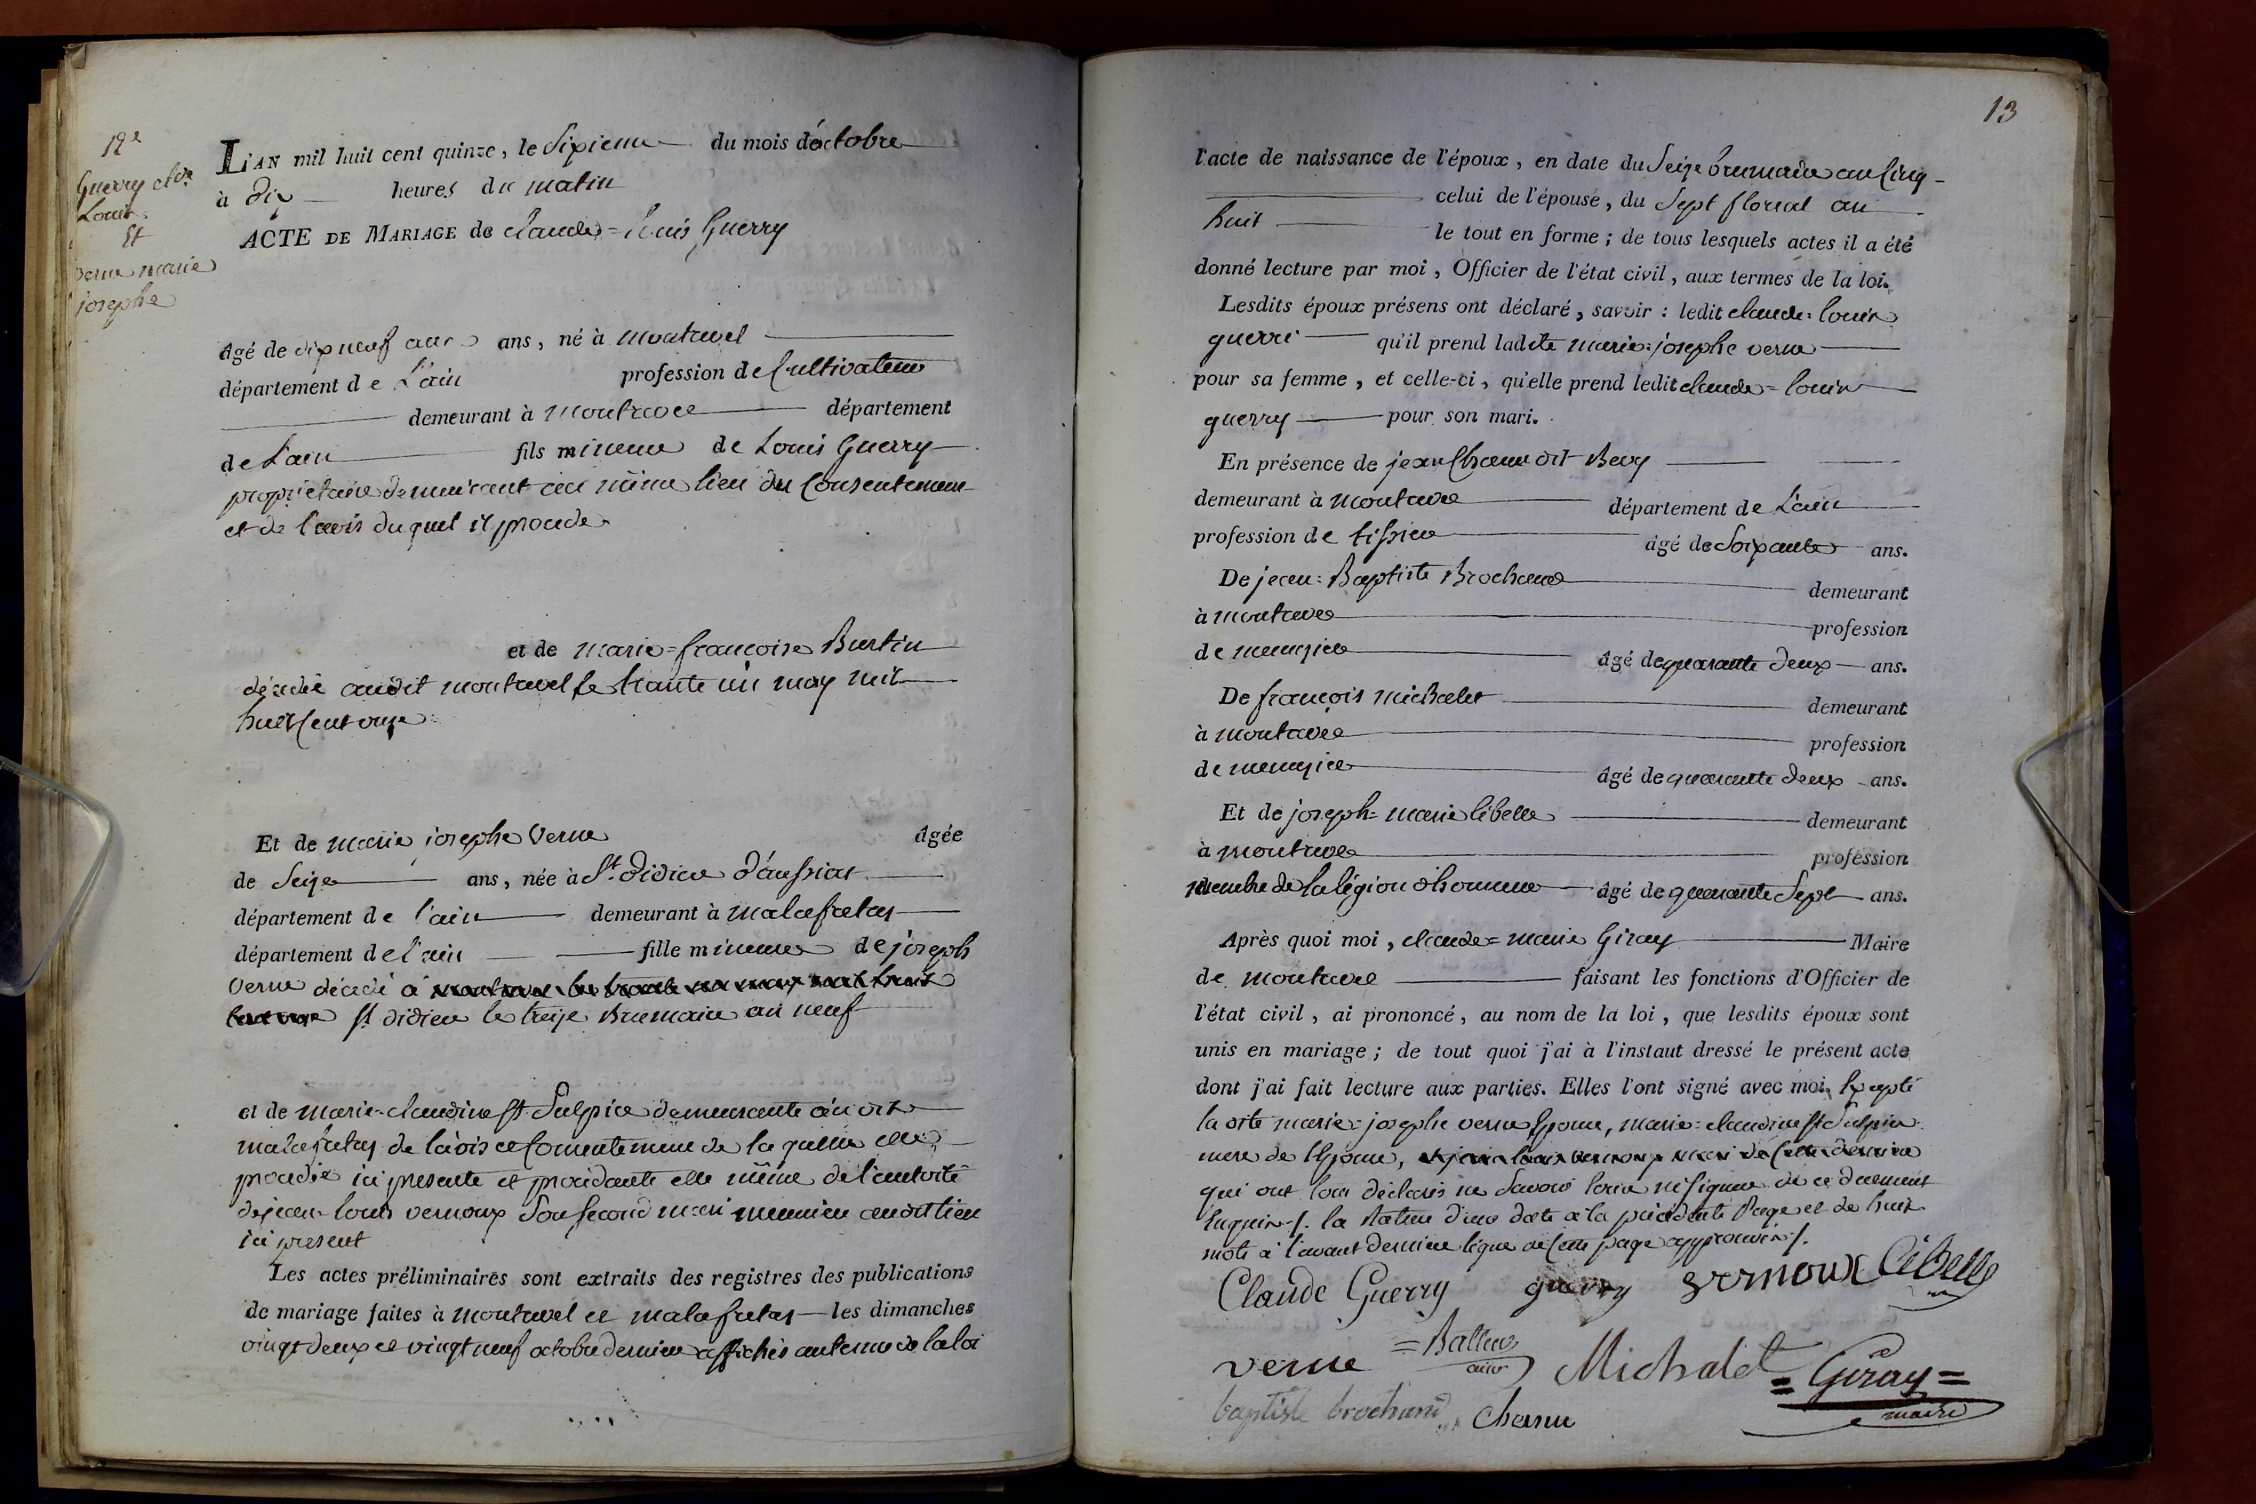 12e
Guerry cl de
Louis
Et
verne marie
josephe
L'AN mil huit cent quinze, le sixieme du mois d'octobre
à dix heures du matin
ACTE DE MARIAGE de claude=louis Guerry
âgé de dix neuf ans ans, né à montrevel
département de L'ain profession de Cultivateur
demeurant à montrevel département
de L'ain fils mineur de Louis Guerry
proprietaire demeurant au même lieu du Consentement
et de l'avis duquel il procede
et de marie=francoise Burtin
décédée audit montrevel le trante un may mil
huit Cent onze
Et de marie josephe Verne âgée
de Seize ans, née à St. didier d'aussiat
département de l'ain demeurant à malafretas
département de l'ain fille mineure de joseph
Verne décédé à
St didier le treize Brumaire an neuf
et de marie=claudine St. Sulpice demeurante audit
malafretas de l'avis et Consentement de laquelle elle
procede ici presente et procédante elle même de l'autorité
de jean louis vernoux son second mari meunier audit lieu
ici present
Les actes préliminaires sont extraits des registres des publications
de mariage faites à montrevel et malafretas les dimanches
vingt deux et vingt neuf octobre dernier affichés au terme de la loi
13
l'acte de naissance de l'époux, en date du Seize brumaire an Cinq
celui de l'épouse, du Sept floreal an
huit le tout en forme; de tous lesquels actes il a été
donné lecture par moi, Officier de l'état civil, aux termes de la loi.
Lesdits époux présens ont déclaré, savoir: ledit claude=louis
guerri qu'il prend ladite marie=josephe verne
pour sa femme, et celle-ci, qu'elle prend ledit claude=louis
guerry pour son mari.
En présence de jean Charnu dit Bevy
demeurant à montrevel département de L'ain
profession de tissier âgé de Soixante ans.
De jean=Baptiste Brochand demeurant
à montrevel profession
de menuzier âgé de quarante deux ans.
De françois michalet demeurant
à montrevel profession
de menuzier âgé de quarante deux ans.
Et de joseph=marie libelle demeurant
à montrevel profession
membre de la légion d'honneur âgé de quarante Sept ans.
Après quoi moi, claude=marie Giray Maire
de montrevel faisant les fonctions d'Officier de
l'état civil, ai prononcé, au nom de la loi, que lesdits époux sont
unis en mariage; de tout quoi j'ai à l'instant dressé le présent acte
dont j'ai fait lecture aux parties. Elles l'ont signé avec moi, Excepté
la dite marie=josephe verne Epouse, marie=claudine St Sulpice
mere de l'Epouse, et jean louis vernoux mari de Cette derniere
qui ont tous déclarés ne Savoir Ecrire ni Signer de ce duement
Enquis /. la rature d'une date à la précédente Page et de huit
mots à l'avant derniere ligne de Cette page approuvés /.
Claude Guerry guerry vernoux libelle
verne Michalet =Giray=
maire
baptiste brochand Charnu